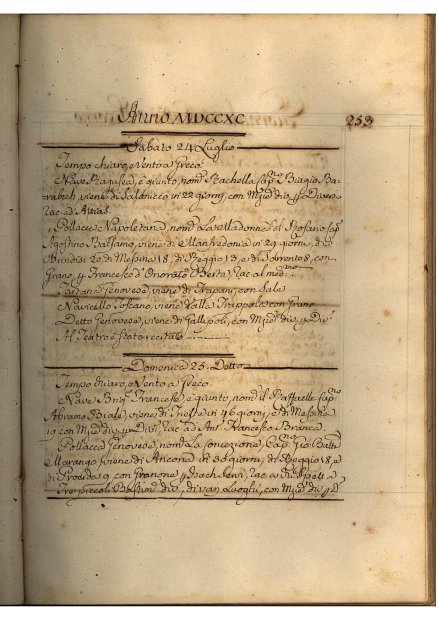 Anno MDCCXC.
253
Sabato 24 Luglio
Tempo chiaro, e Vento a Greco.
Nave Ragusea, è giunto, nom.ª Rachella Cap.no Biagio Ba-
viene di Salonico in 22 giorni, con Mjzie div. p Diversi
Rac. ad
Pollacca Napoletana, nom.ª La Madonna del Cap.
Agostino Balsamo, viene di Manfredonia in 29 giorni, di
Brindisi 20 di Messina 18, di Reggio 13, e di Sorrento 8, con
Grano, p Francesco d'Onorato Berte, Rac. al med.mo
Genovese, viene di Trapani, con Sale
Navicello Toscano, viene dalle Trappola con Grano
Detto Genovese, viene di Gallipoli, con Mjzie div. p Div.i
Al Teatro è stato recitato
Domenica 25. Detto
Tempo chiaro, e Vento a Greco
Nave Brig. Francese, è giunto, nom.ª il Raffaelle Cap.no
Abramo viene di in 46 giorni, e di Messina
19 con Mjzie div. p Div.i Rac. ad Ant. Francesco Branca.
Pollacca Genovese, nom.ª La Concezione, Cap.no Gio. Batta
Marango, viene di Ancona in 35 giorni, di Reggio 18, e
di Procida 9, con Granone, p Rac. a
Tre piccoli Bastim. div. di van Luoghi, con Mjzie div. p D.